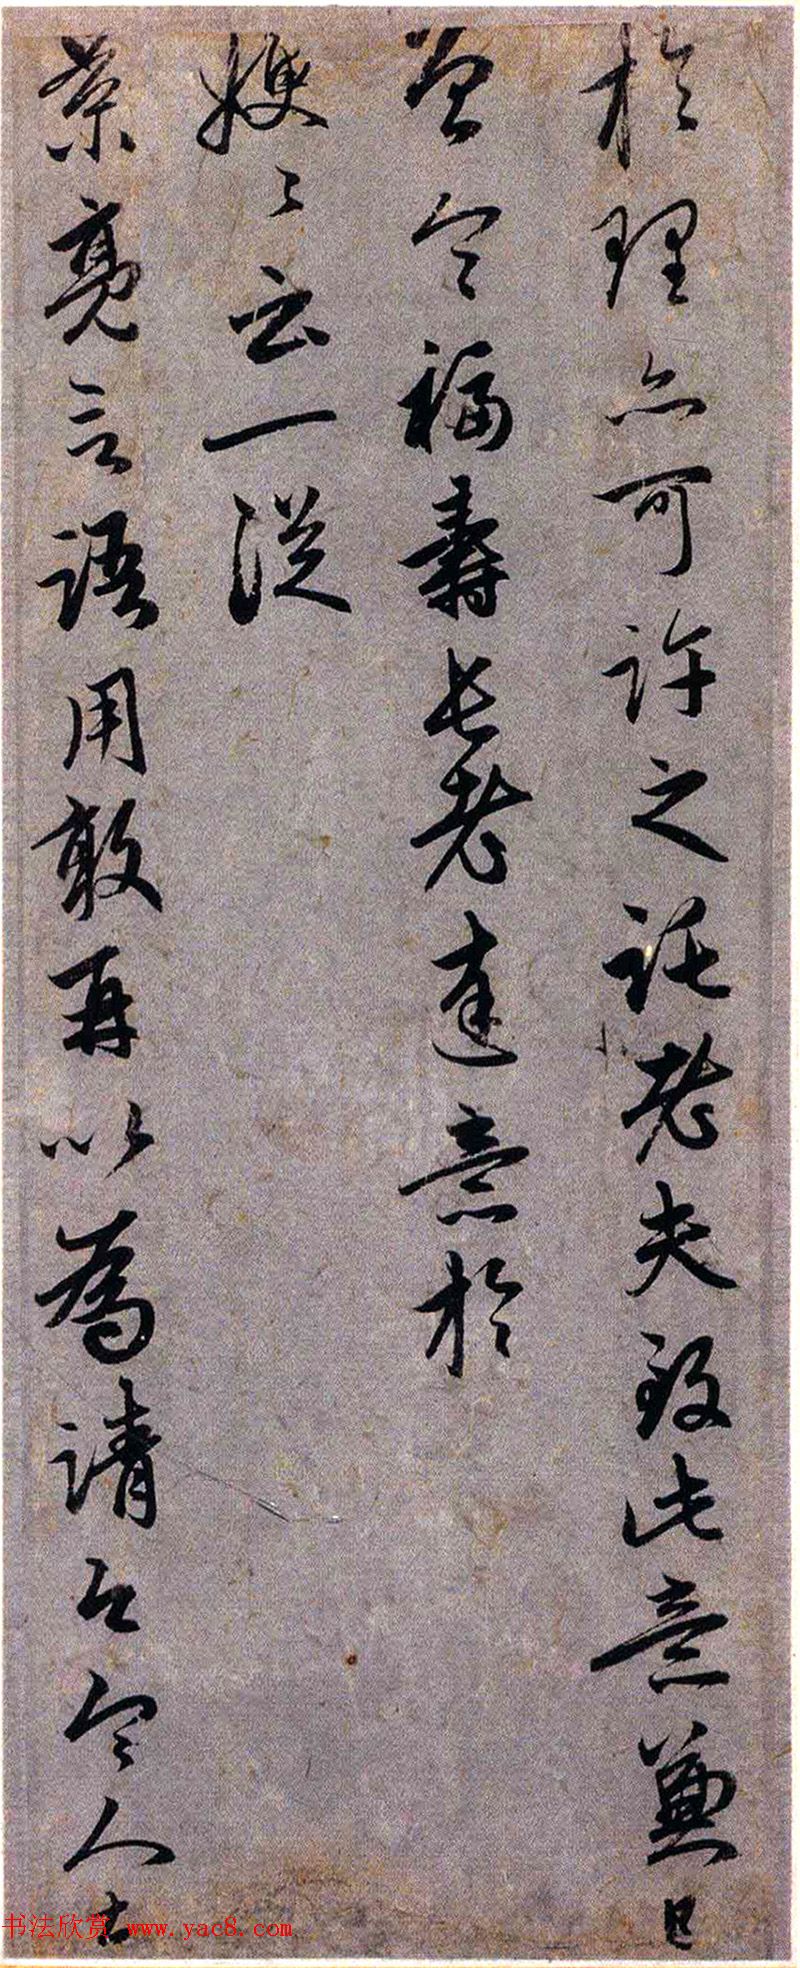 於理亦可許之託老夫致此意兼已
曾令福壽長老達意於
嫂〻云一從
蔡亮言語用敢再以為請乞令人
书法欣赏 www.yac8.com